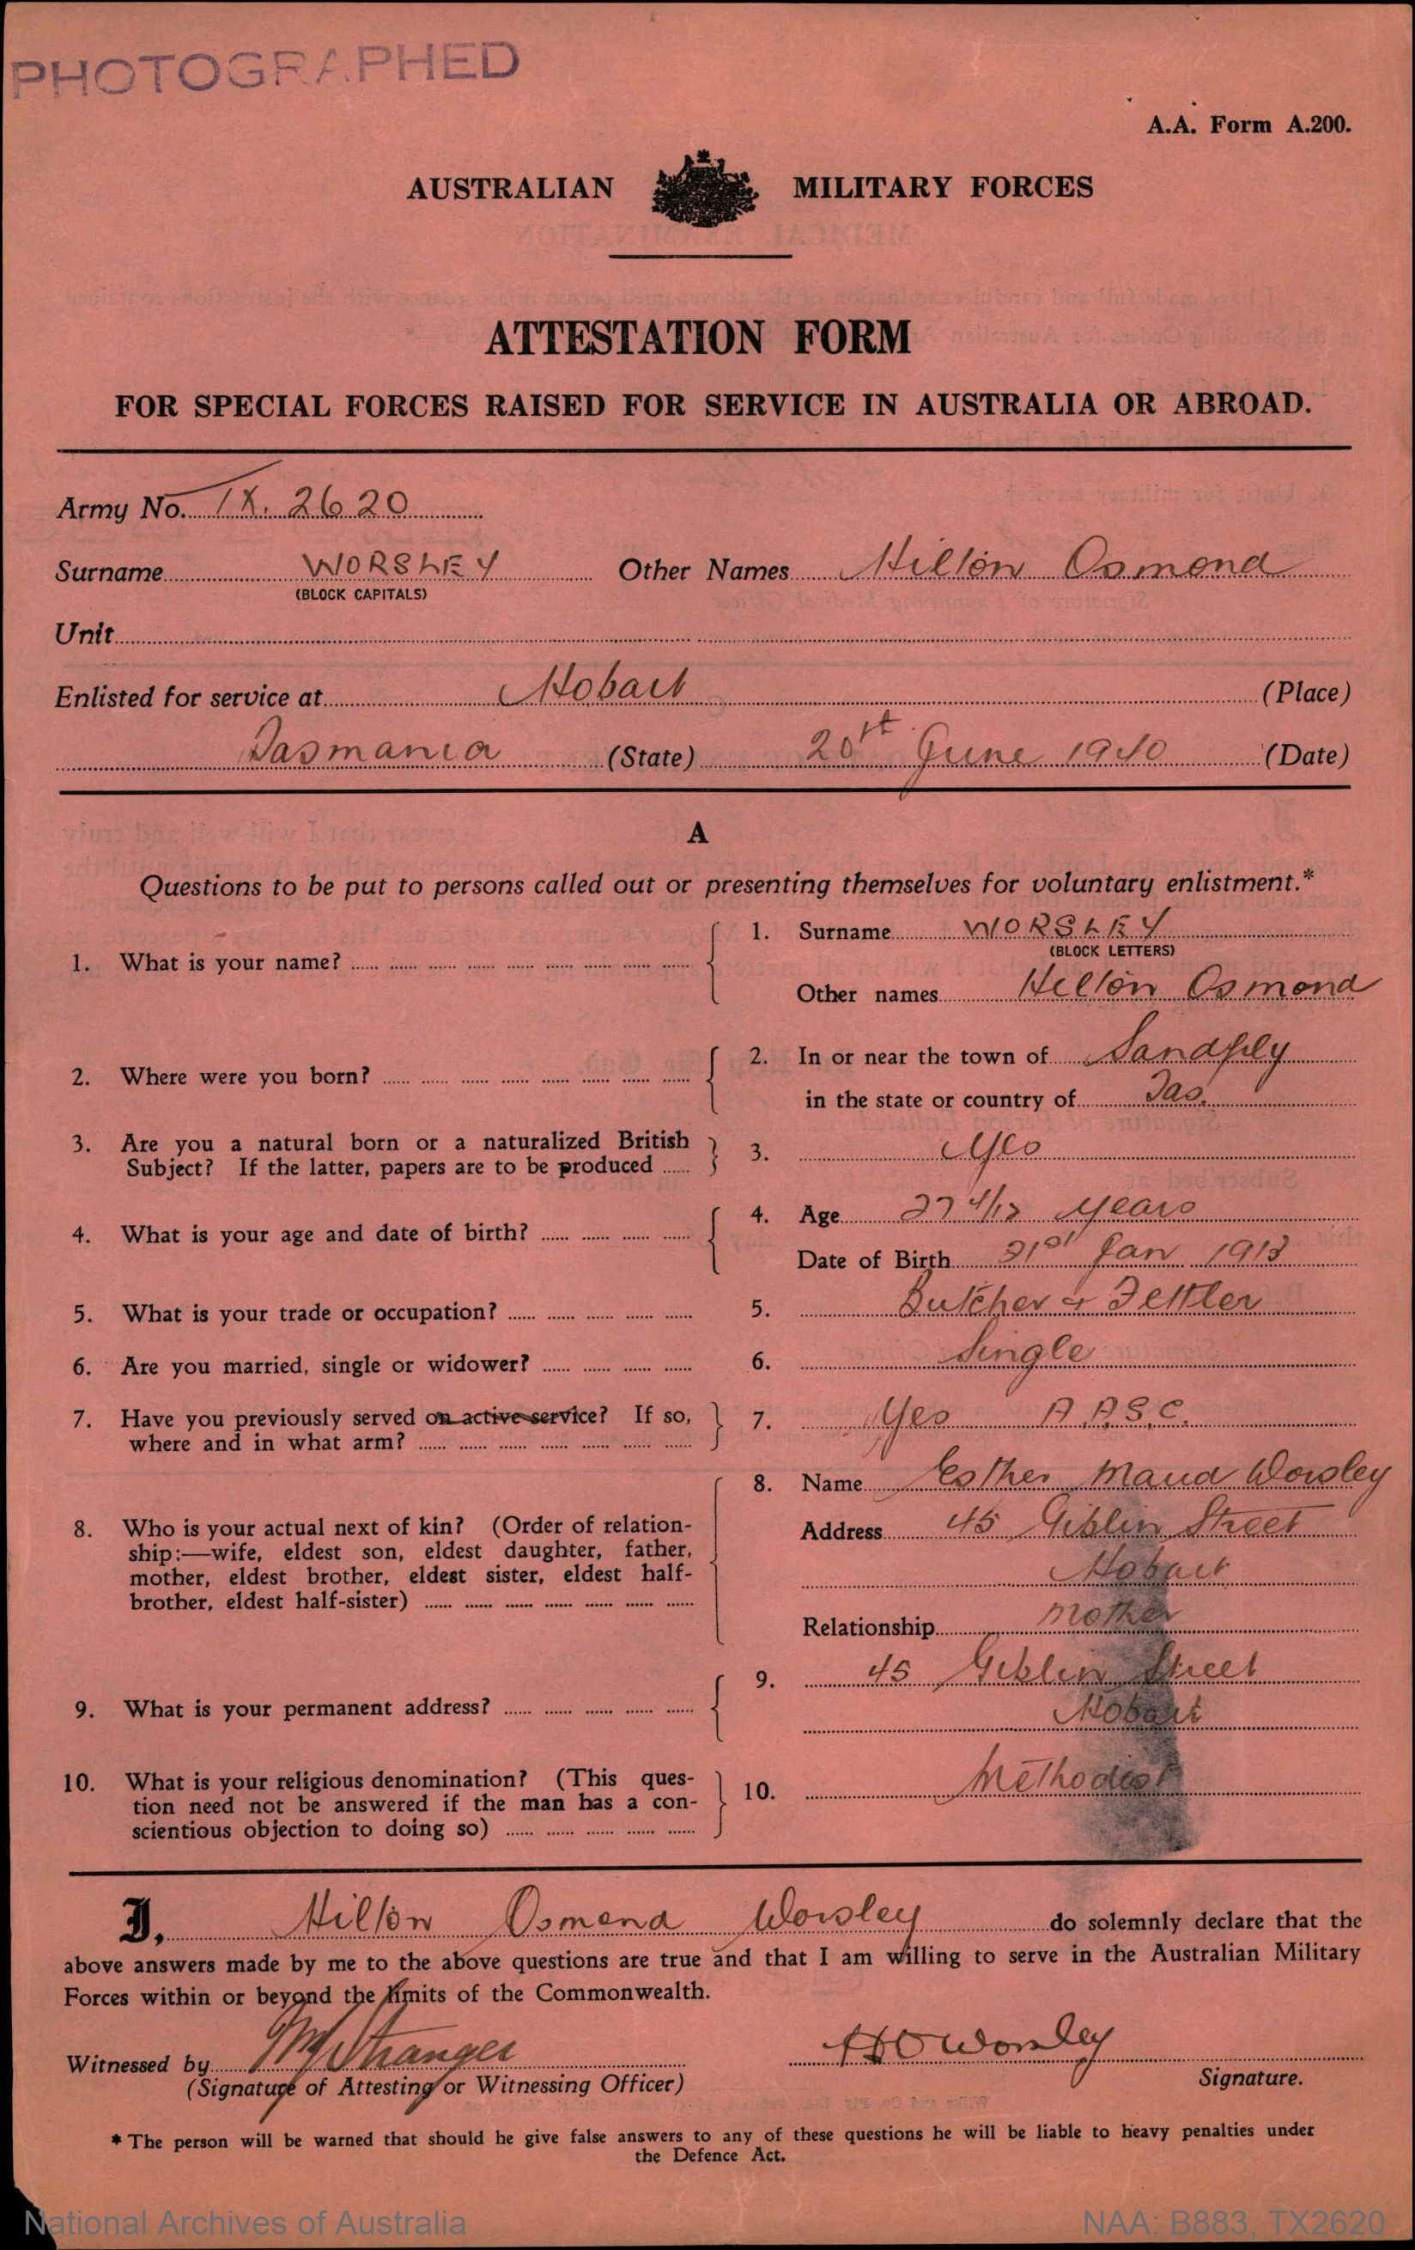 PHOTOGRAPHED
A.A. Form A.200.
AUSTRALIAN MILITARY FORCES
ATTESTATION FORM
FOR SPECIAL FORCES RAISED FOR SERVICE IN AUSTRALIA OR ABROAD.
Army No. TX. 2620
Surname WORSLEY Other Names Hilton Osmond
(BLOCK CAPITALS)
Unit
Enlisted for service at Hobart (Place)
Tasmania (State) 20th June 1940 (Date)
A
Questions to be put to persons called out or presenting themselves for voluntary enlistment.*
1. What is your name? 1. Surname WORSLEY
(BLOCK LETTERS)
Other names Hilton Osmond
2. Where were you born? 2. In or near the town of Sandfly
in the state or country of Tas.
3. Are you a natural born or a naturalized British
Subject? If the latter, papers are to be produced 3. Yes
4. What is your age and date of birth? 4. Age 27 4/12 years
Date of Birth 21st Jan 1913
5. What is your trade or occupation? 5. Butcher & Fettler
6. Are you married, single or widower? 6. Single
7. Have you previously served on active service? If so,
where and in what arm? 7. Yes A.A.S.C.
8. Who is your actual next of kin? (Order of relation-
ship:—wife, eldest son, eldest daughter, father,
mother, eldest brother, eldest sister, eldest half-
brother, eldest half-sister)
8. Name Esther Maud Worsley
Address 45 Giblin Street
Hobart
Relationship Mother
9. What is your permanent address? 9. 45 Giblin Street
Hobart
10. What is your religious denomination? (This ques-
tion need not be answered if the man has a con-
scientious objection to doing so) 10. Methodist
I, Hilton Osmond Worsley do solemnly declare that the
above answers made by me to the above questions are true and that I am willing to serve in the Australian Military
Forces within or beyond the limits of the Commonwealth.
Witnessed by Stranger H O Worsley
(Signature of Attesting or Witnessing Officer) Signature.
* The person will be warned that should he give false answers to any of these questions he will be liable to heavy penalties under
the Defence Act.
National Archives of Australia NAA: B883, TX2620